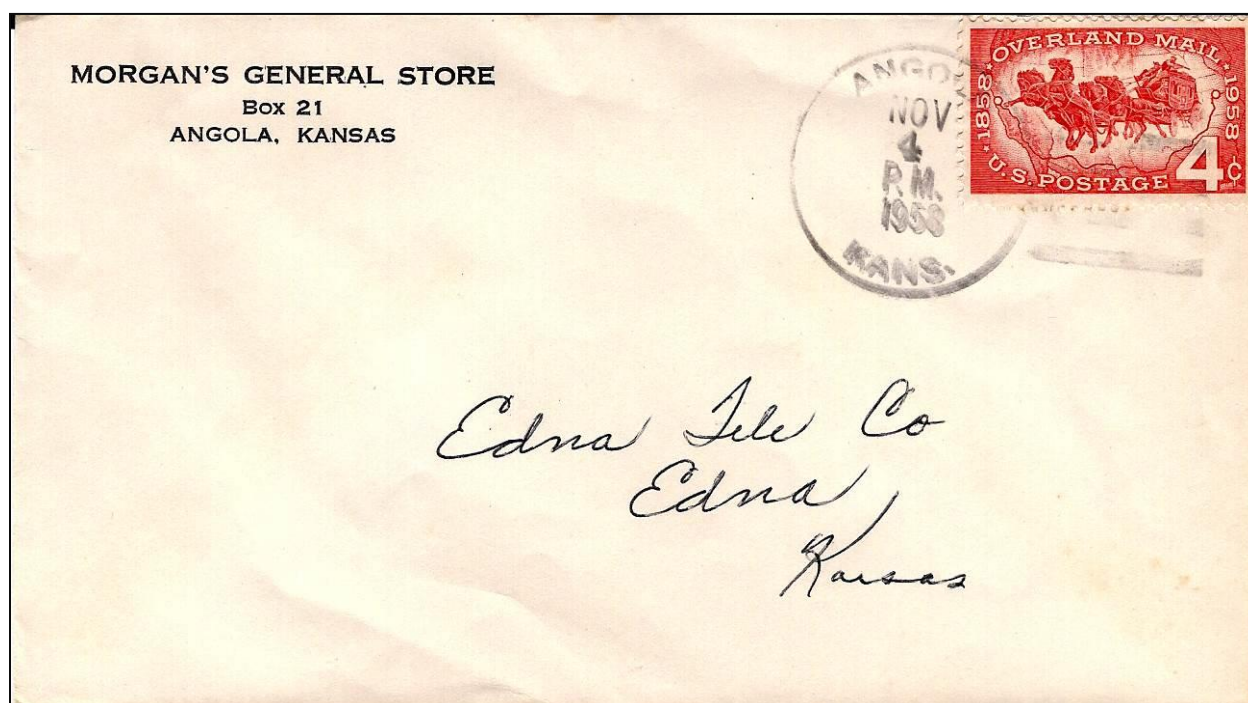 MORGAN'S GENERAL STORE
Box 21
ANGOLA, KANSAS
ANGOLA
NOV
4
P.M.
1958
KANS.
OVERLAND MAIL
1858
1958
U.S. POSTAGE
4¢
Edna Tele Co
Edna,
Kansas